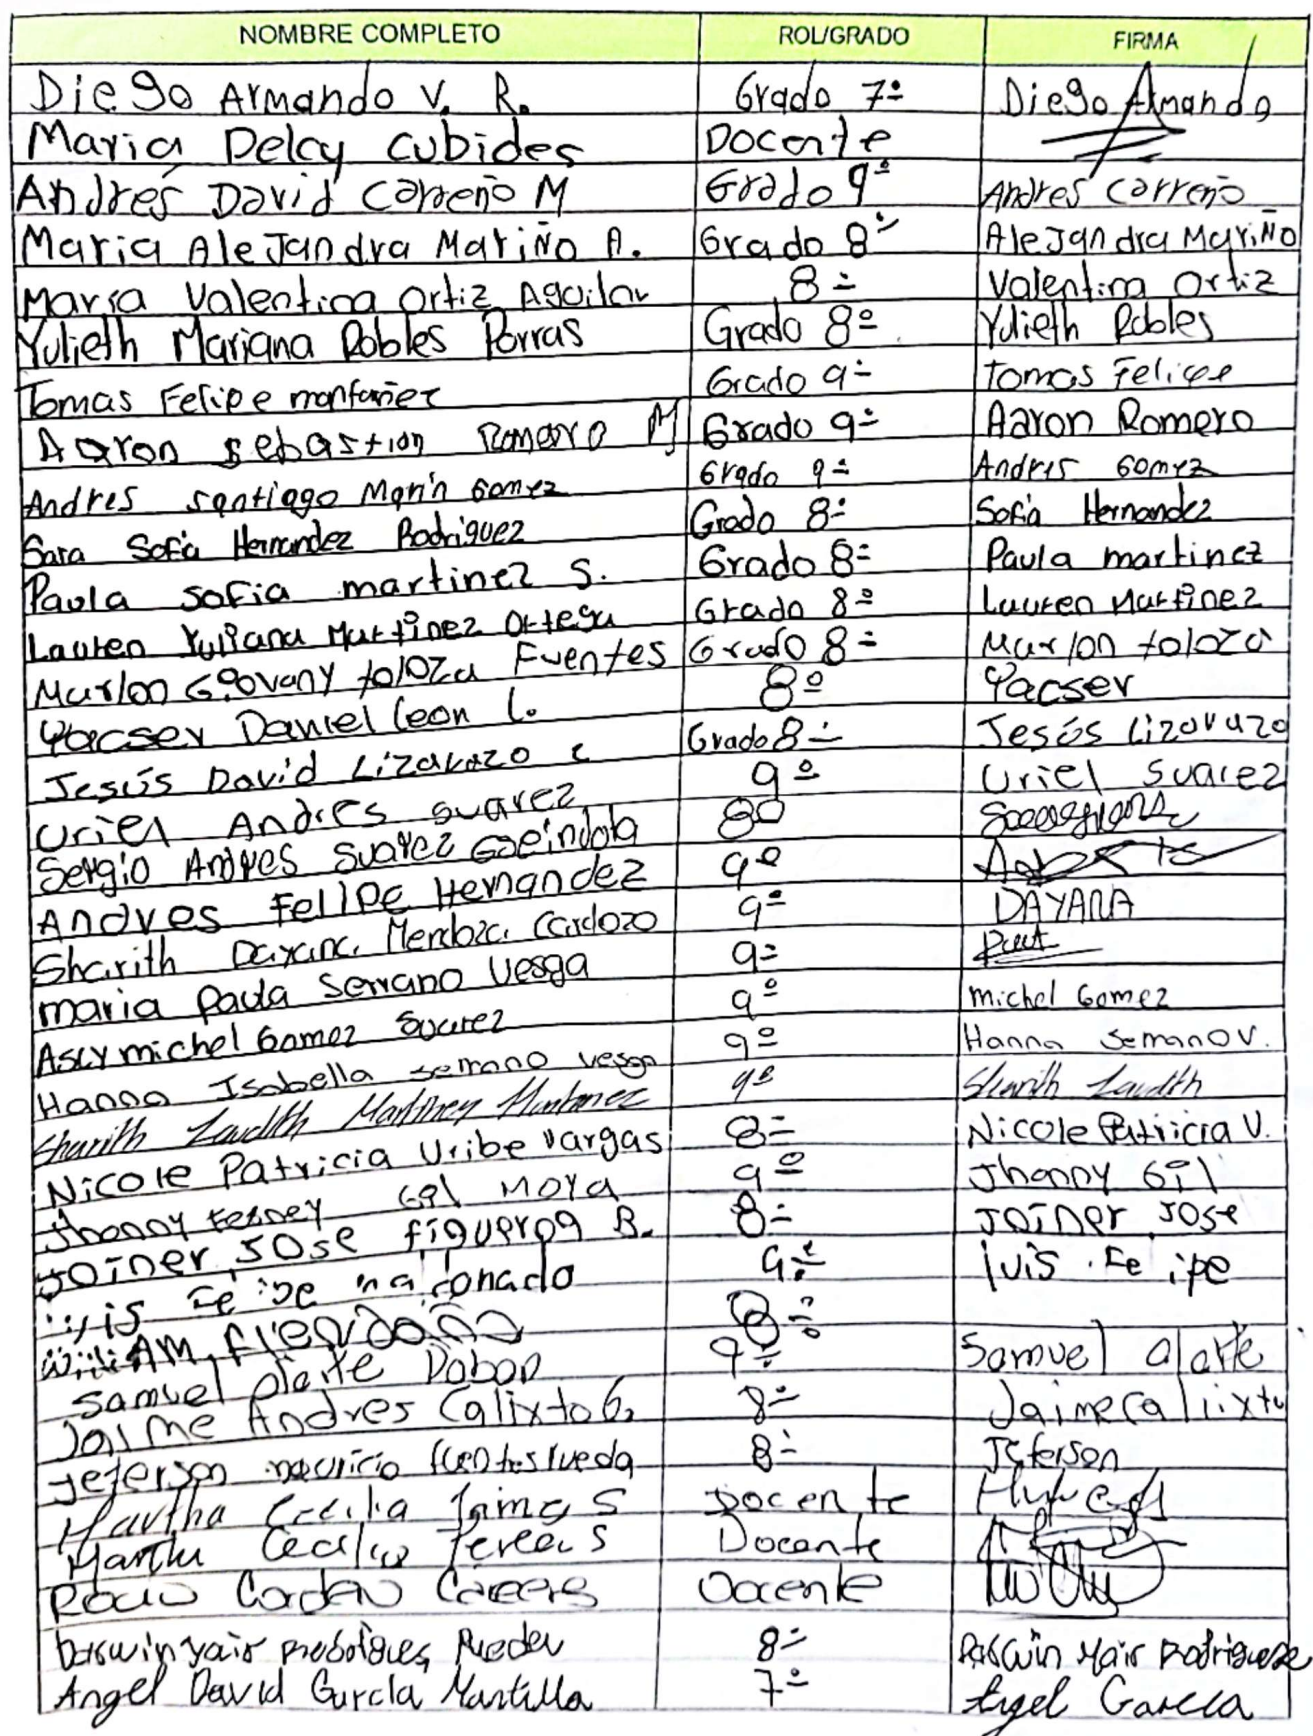 NOMBRE COMPLETO ROL/GRADO FIRMA
Diego Armando V. R. Grado 7º Diego Armando
Maria Delcy Cubides Docente
Andrés David Carreño M Grado 9º Andres Carreño
Maria Alejandra Mariño A. Grado 8º Alejandra Mariño
Maria Valentina Ortiz Aguilar 8º Valentina Ortiz
Yulieth Mariana Robles Porras Grado 8º Yulieth Robles
Tomas Felipe montañez Grado 9º tomas Felipe
Aaron sebastian Romero M Grado 9º Aaron Romero
Andres santiago Marin Gomez Grado 9º Andres Gomez
Sara Sofia Hernandez Rodriguez Grado 8º Sofia Hernandez
Paula sofia martinez S. Grado 8º Paula martinez
Lauren Yuliana Martinez Ortega Grado 8º Lauren Martinez
Marlon Giovany toloza Fuentes Grado 8º Marlon toloza
Yacser Daniel Leon L. 8º Yacser
Jesús David Lizarazo c Grado 8º Jesús Lizarazo
Uriel Andres suarez 9º Uriel Suarez
Sergio Andres Suarez 8º
Andres Felipe Hernandez 9º
Sharith Dayana Mendoza Cardozo 9º DAYANA
maria Paula Serrano Vesga 9º
Ascy michel Gomez Suarez 9º michel Gomez
Hanna Isabella serrano vesga 9º Hanna Serrano V.
Sharith Martinez 9º Sharith
Nicole Patricia Uribe Vargas 8º Nicole Patricia V.
Jhonny Gil Moya 9º Jhonny Gil
Joiner Jose figueroa B. 8º Joiner Jose
9º luis Fe ipe
8º
Samuel olarte Pabon 9º Samuel olarte
Jaime Andres Calixto G. 8º Jaime Calixto
Jeferson mauricio fuentes rueda 8º Jeferson
Martha Cecilia Jaimes S Docente
Martha Cecilia S Docente
Rocio Cordero Docente
Darwin yair 8º Darwin Yair Rodriguez
Angel David Garcia Mantilla 7º Angel Garcia